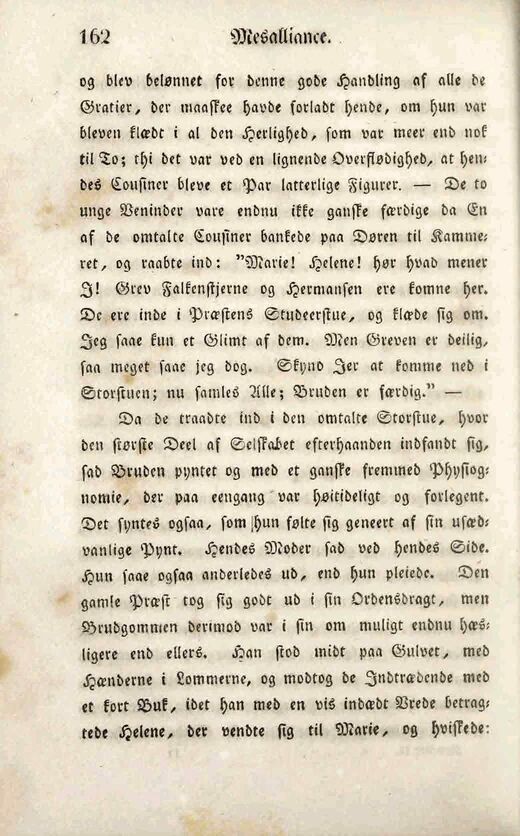 162 Mesalliance.
og blev belønnet for denne gode Handling af alle de
Gratier, der maaskee havde forladt hende, om hun var
bleven klædt i al den Herlighed, som var meer end nok
til To; thi det var ved en lignende Overflødighed, at hen-
des Cousiner bleve et Par latterlige Figurer. — De to
unge Veninder vare endnu ikke ganske færdige da En
af de omtalte Cousiner bankede paa Døren til Kamme-
ret, og raabte ind: "Marie! Helene! hør hvad mener
I! Grev Falkenstjerne og Hermansen ere komne her.
De ere inde i Præstens Studeerstue, og klæde sig om.
Jeg saae kun et Glimt af dem. Men Greven er deilig,
saa meget saae jeg dog. Skynd Jer at komme ned i
Storstuen; nu samles Alle; Bruden er færdig." —
Da de traadte ind i den omtalte Storstue, hvor
den største Deel af Selskabet efterhaanden indfandt sig,
sad Bruden pyntet og med et ganske fremmed Physiog-
nomie, der paa eengang var høitideligt og forlegent.
Det syntes ogsaa, som hun følte sig geneert af sin usæd-
vanlige Pynt. Hendes Moder sad ved hendes Side.
Hun saae ogsaa anderledes ud, end hun pleiede. Den
gamle Præst tog sig godt ud i sin Ordensdragt, men
Brudgommen derimod var i sin om muligt endnu hæs-
ligere end ellers. Han stod midt paa Gulvet, med
Hænderne i Lommerne, og modtog de Indtrædende med
et kort Buk, idet han med en vis indædt Vrede betrag-
tede Helene, der vendte sig til Marie, og hviskede: